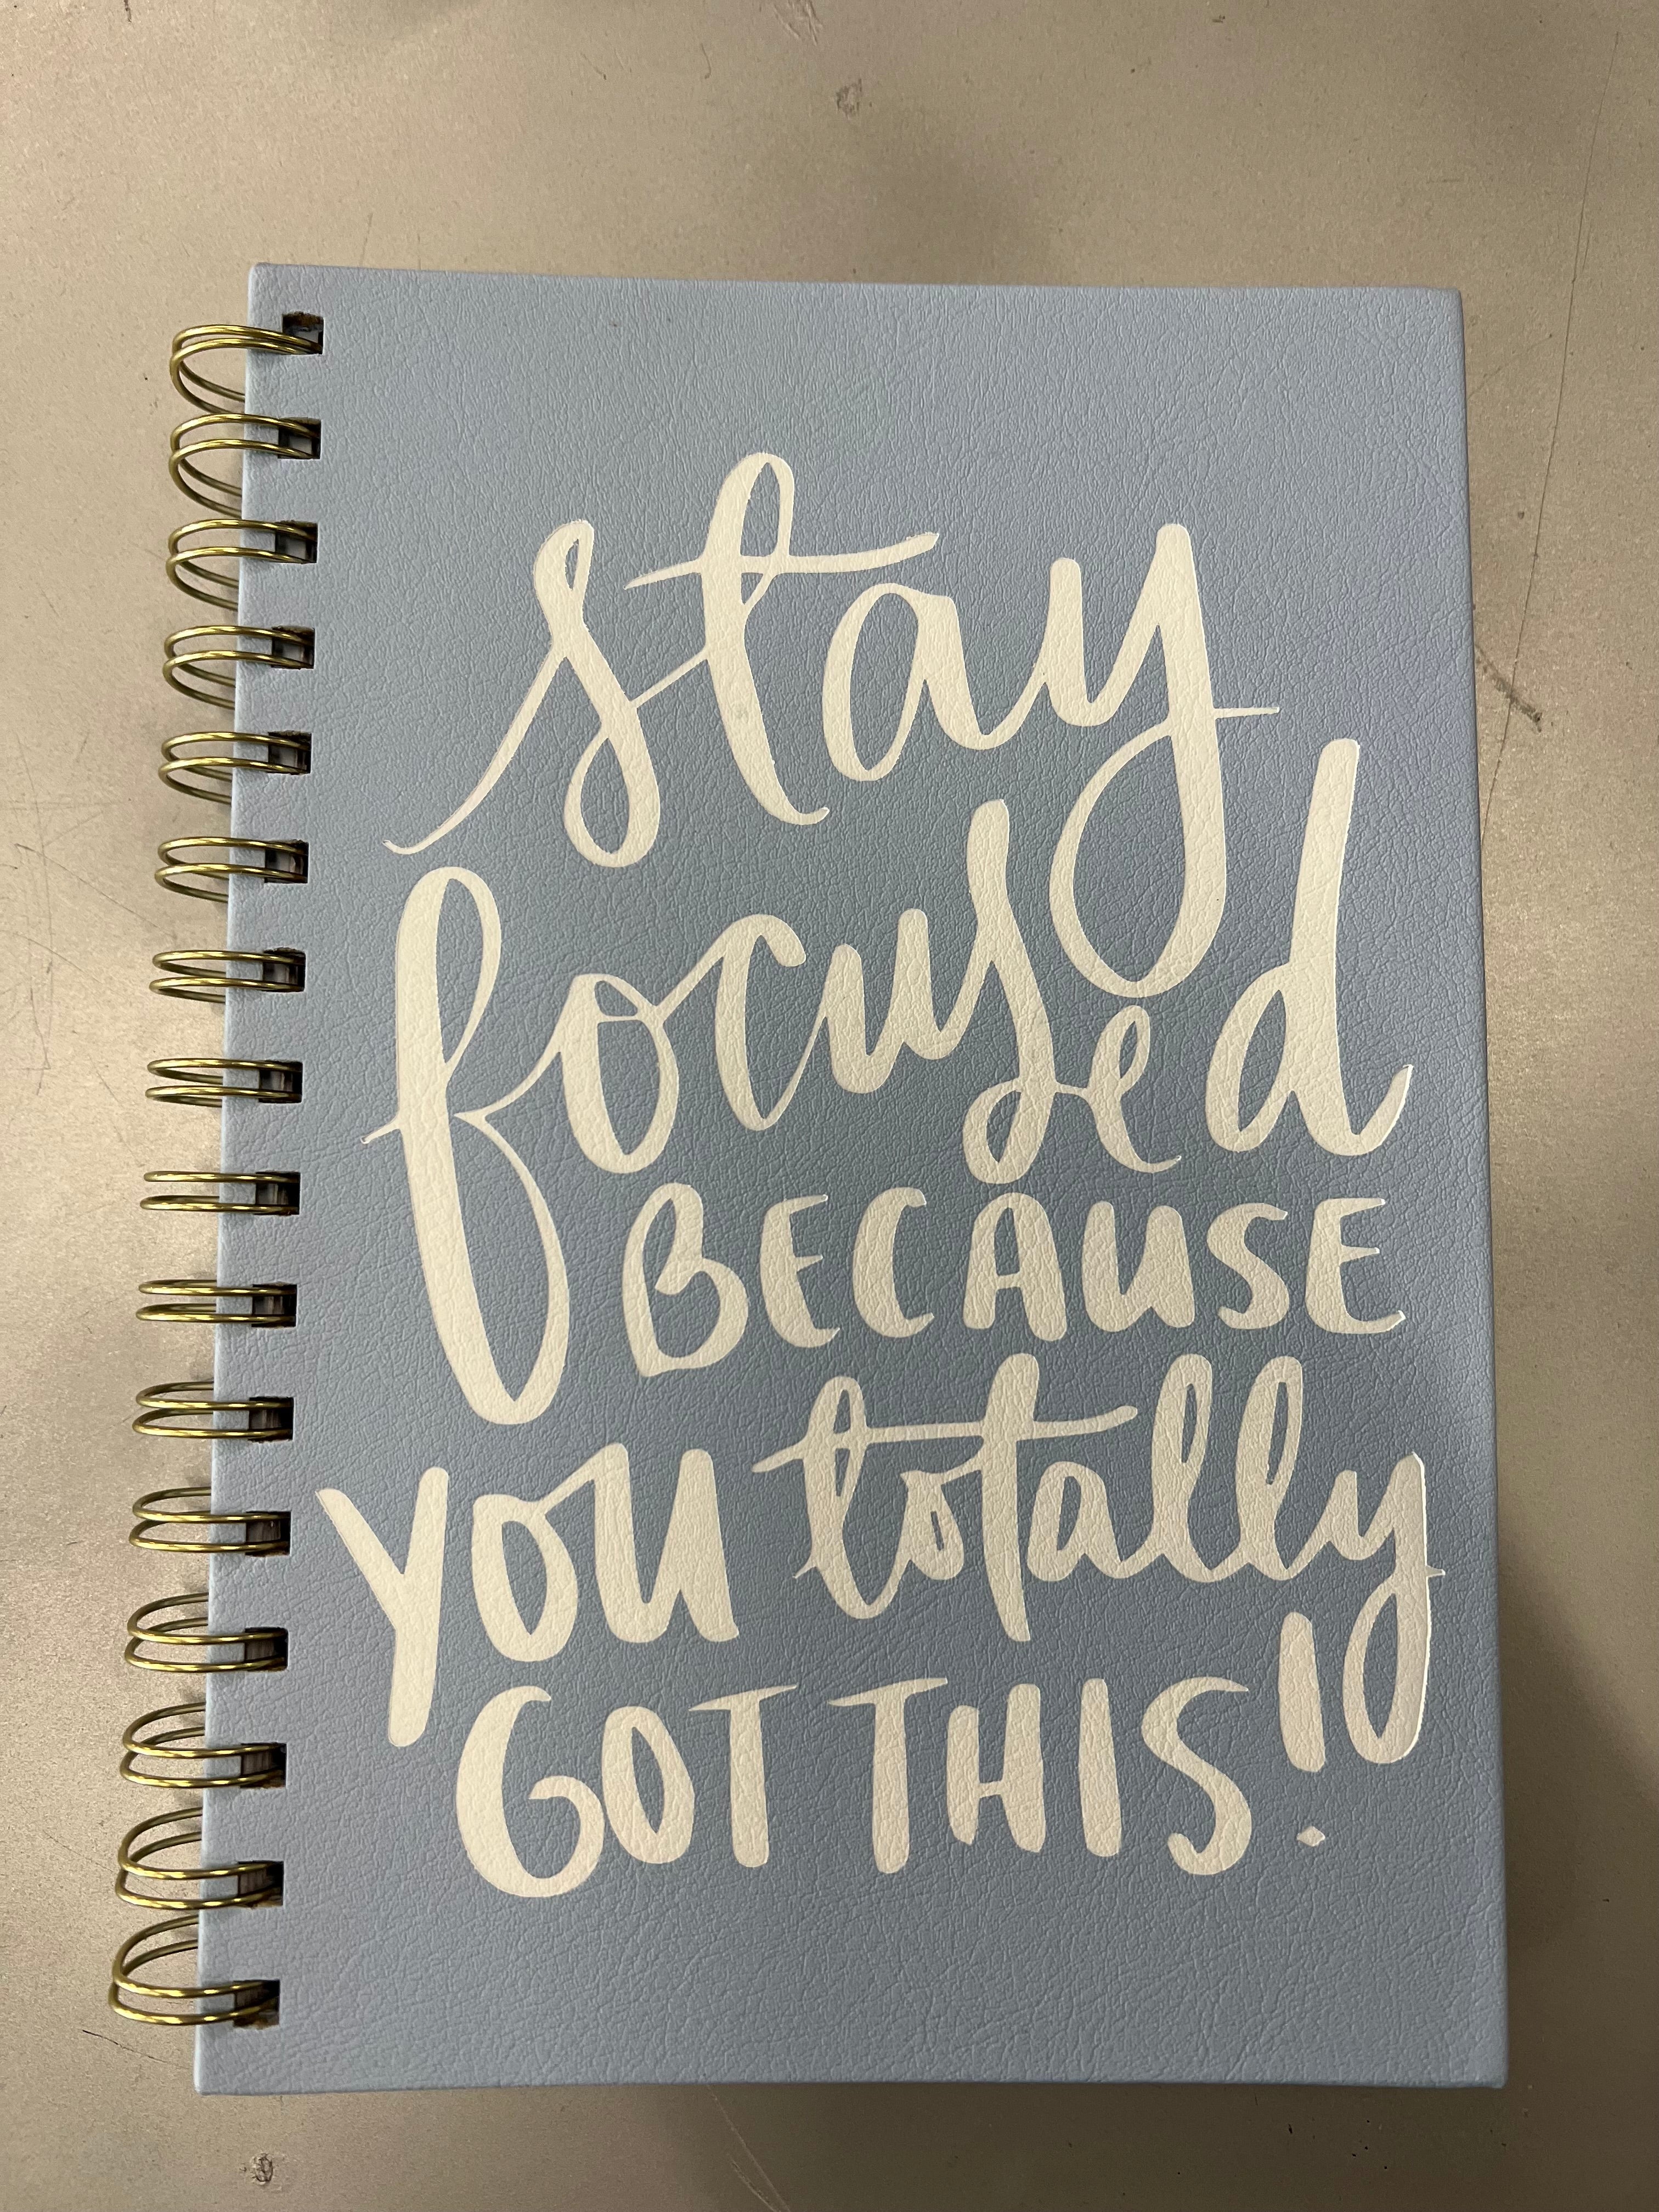 stay
focused
BECAUSE
you totally
GOT THIS!